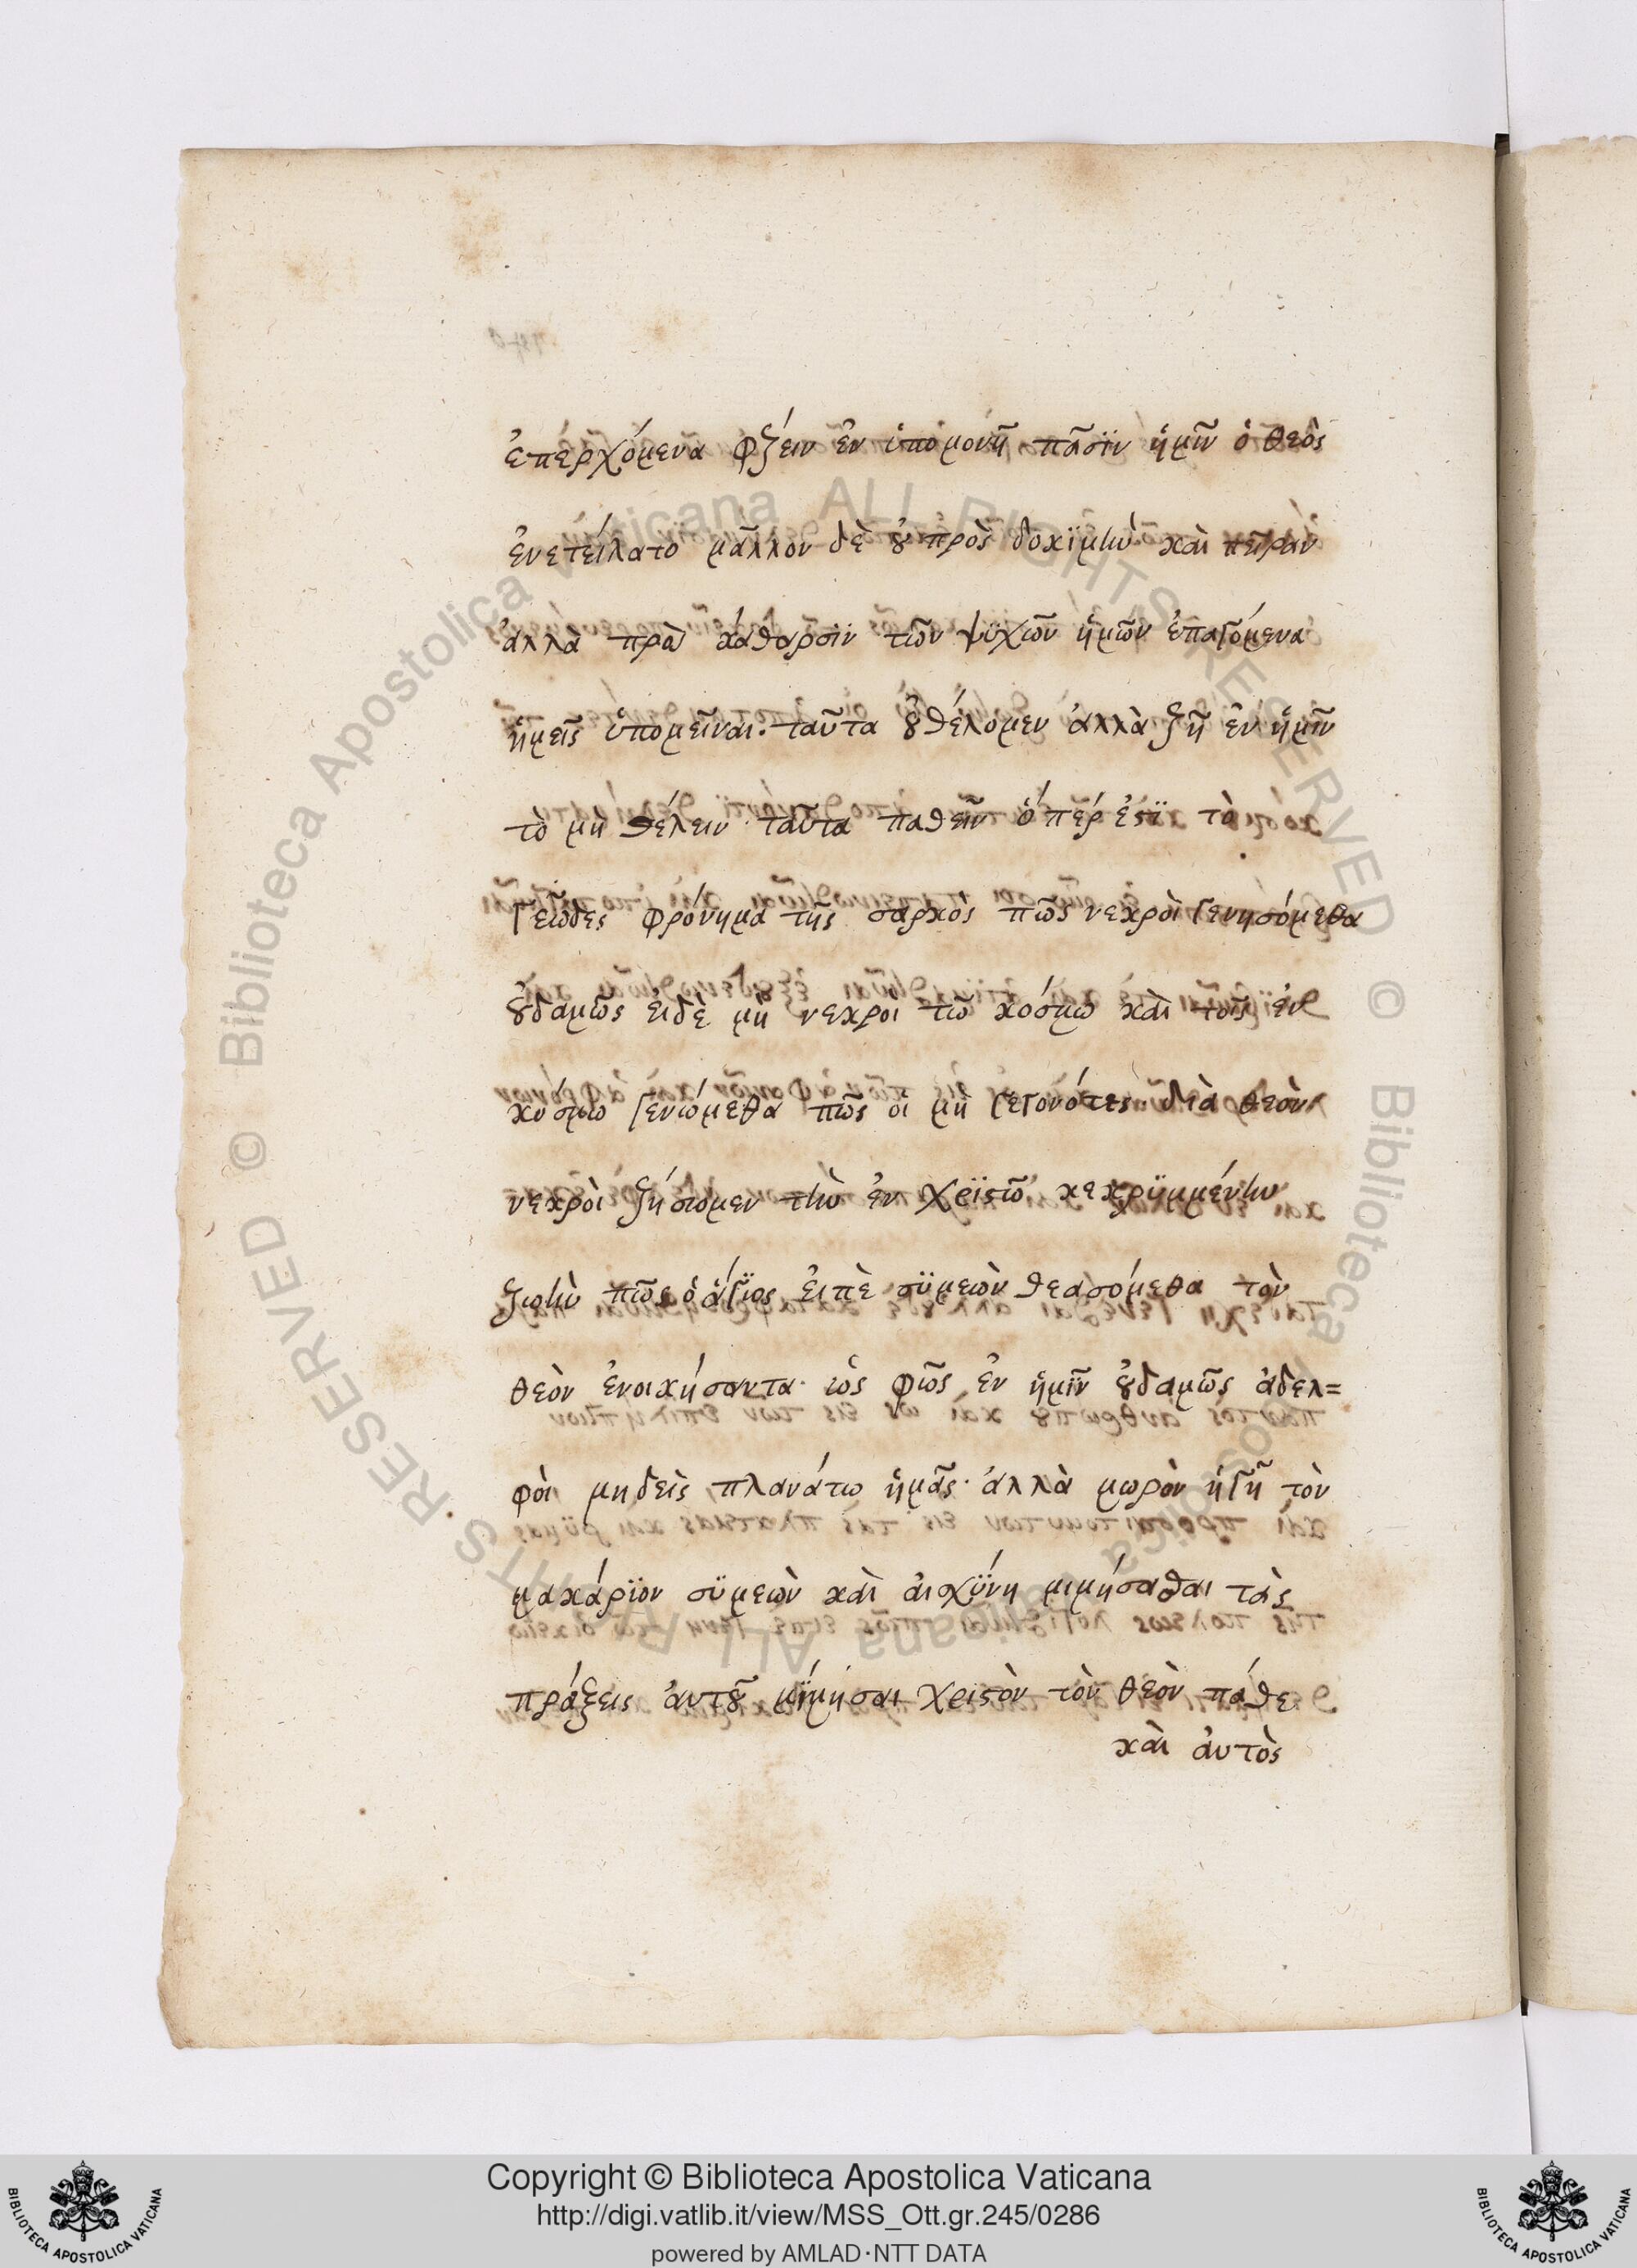 ἐπερχόμενα φέρειν ἐν ὑπομονῆ πᾶσϊν ἡμῖν ὁ θεὸς
ἐνετείλατο μᾶλλον δὲ ȣ̓ πρὸς δοκϊμὴν καὶ πεῖραν
ἀλλὰ πρὸς κάθαρσϊν τῶν ψϋχῶν ἡμῶν ἐπαγόμενα
ἡμεῖς ὑπομεῖναι. ταῦτα ȣ̓ θέλομεν ἀλλὰ ζῆ ἐν ἡμῖν
τὸ μὴ θέλειν ταῦτα παθεῖν ὅπέρ ἐϛϊ τὸ
γεῶδες φρόνημα τῆς σαρκὸς πῶς νεκροὶ γενησόμεθα
ȣ̓δαμῶς εἰδέ μὴ νεκροὶ τῶ κόσμω καὶ τοῖς ἐν
κόσμω γενώμεθα πῶς οἱ μὴ γεγονότες διὰ θεὸν
νεκροὶ ζήσωμεν τὴν ἐν χρϊϛῶ κεκρϋμμένην
ζωὴν πῶς ὁ ἅγϊος εἰπὲ σϋμεὼν θεασόμεθα τὸν
θεὸν ἐνοικήσαντα· ὡς φῶς ἐν ἡμῖν ȣ̓δαμῶς ἀδελ=
φοὶ μηδεὶς πλανάτω ἡμᾶς· ἀλλὰ μωρὸν ἡγῆ τὸν
μακάρϊον σϋμεὼν καὶ αἰσχϋνη μιμήσασθαι τὰς
πράξεις ἀυτȣ͂ μίμησαι χριϛὸν τὸν θεὸν πάθε
καὶ ἀυτὸς
Copyright © Biblioteca Apostolica Vaticana
http://digi.vatlib.it/view/MSS_Ott.gr.245/0286
powered by AMLAD·NTT DATA
BIBLIOTECA APOSTOLICA VATICANA
BIBLIOTECA APOSTOLICA VATICANA
© Biblioteca Apostolica Vaticana ALL RIGHTS RESERVED
© Biblioteca Apostolica Vaticana ALL RIGHTS RESERVED